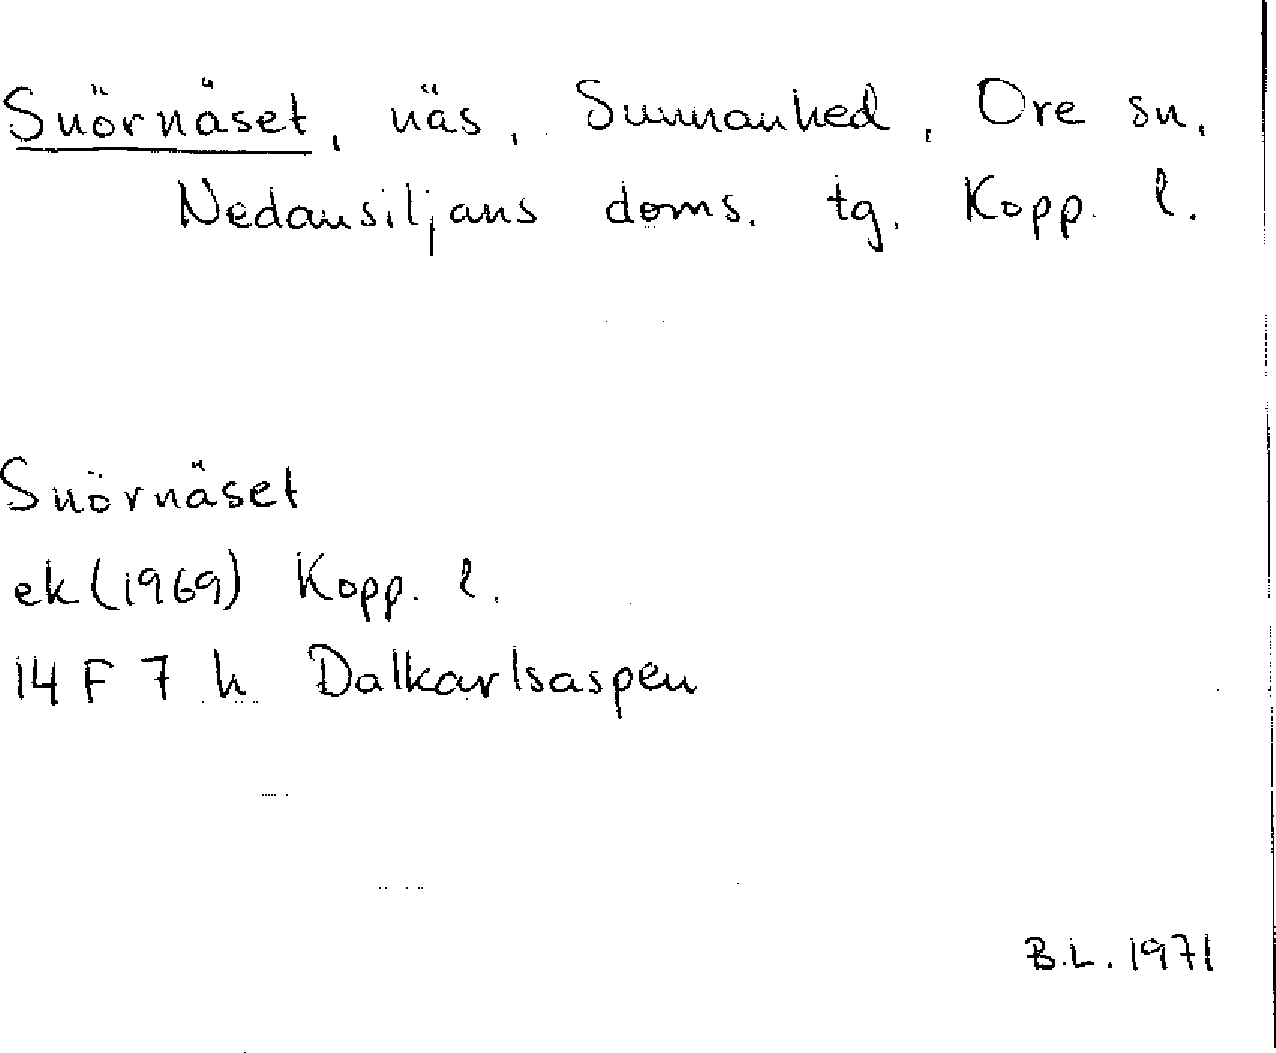 Snörnäset, näs, Sunnanhed, Ore sn,
Nedansiljans doms. tg. Kopp. l.
Snörnäset
ek (1969) Kopp. l.
14 F 7 h Dalkarlsaspen
B.L. 1971